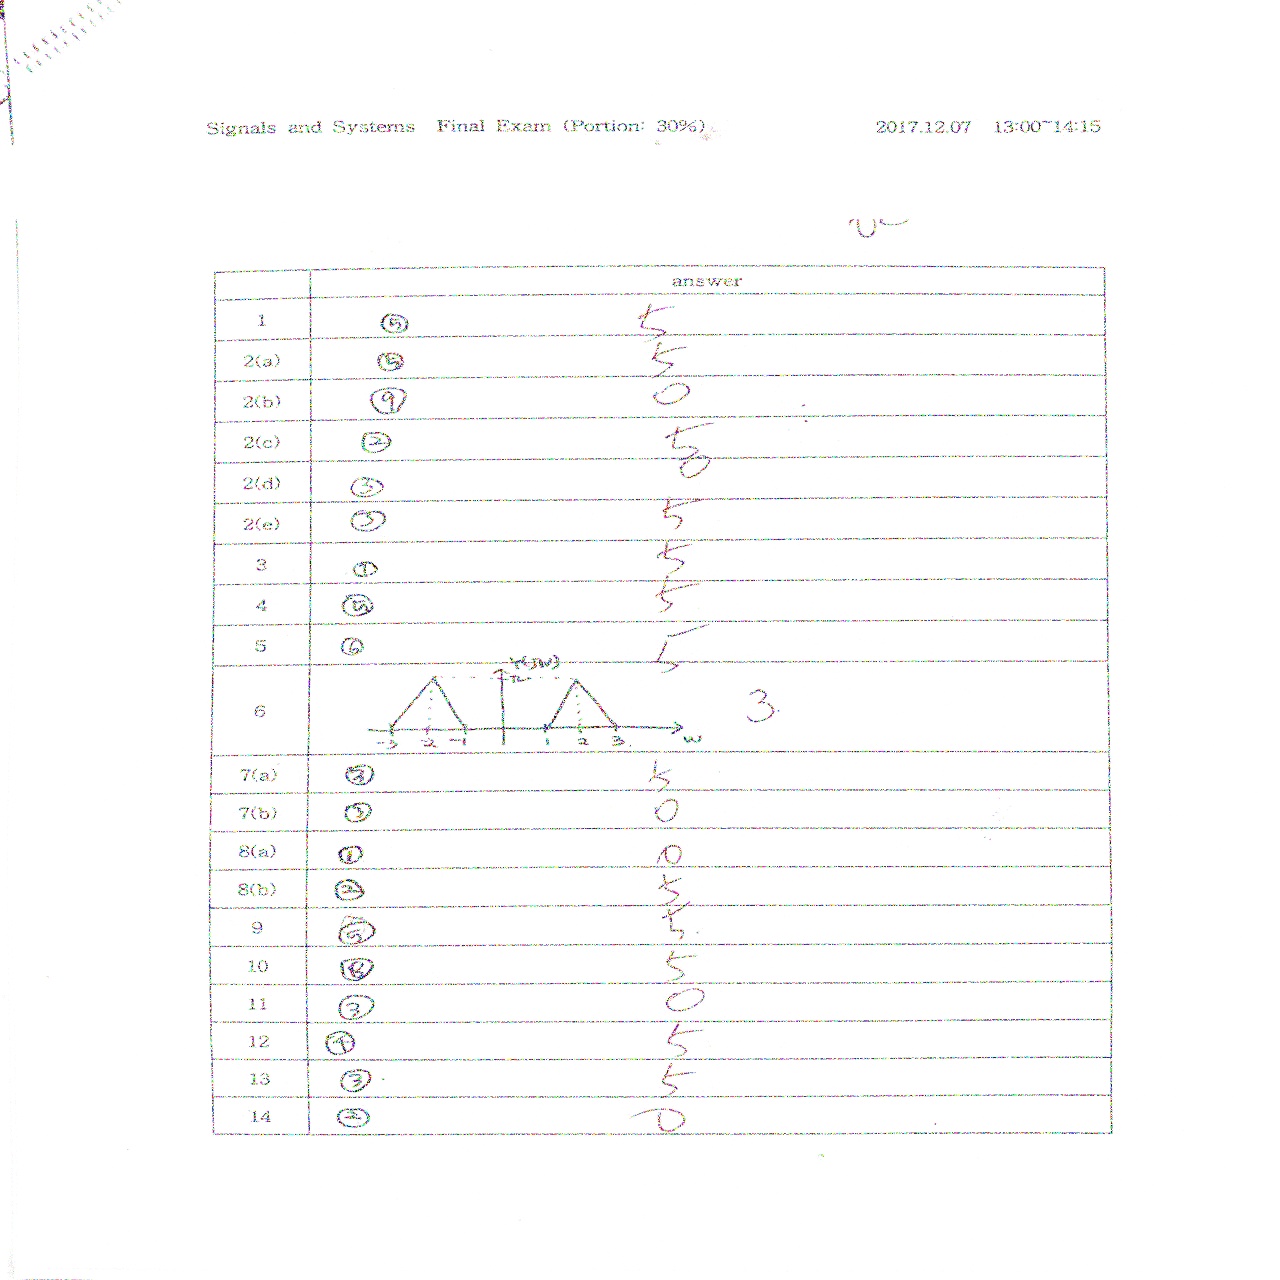 Signals and Systems Final Exam (Portion: 30%) 2017.12.07 13:00~14:15
answer
1 ⑤ 5
2(a) ⑤ 5
2(b) ⑨ 0
2(c) ② 5
2(d) ③ 0
2(e) ③ 5
3 5
4 ⑤ 5
5 ⑥ 5
Y(jw)
π
6 3
-3 -2 -1 1 2 3 w
7(a) ② 5
7(b) ③ 0
8(a) ① 0
8(b) ② 5
9 ⑤ 5
10 5
11 ③ 0
12 5
13 ③ 5
14 ② 0